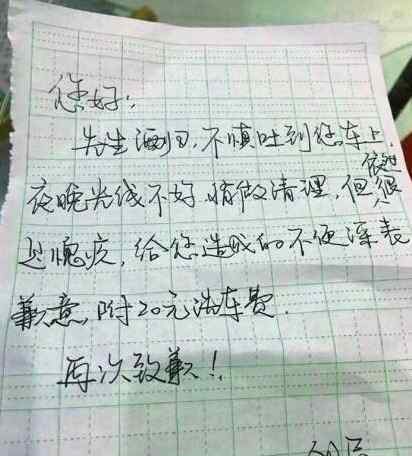 您好:
先生酒归,不慎吐到您车上,
夜晚光线不好,稍做清理,但依然很
过愧疚,给您造成的不便深表
歉意,附20元洗车费.
再次致歉!